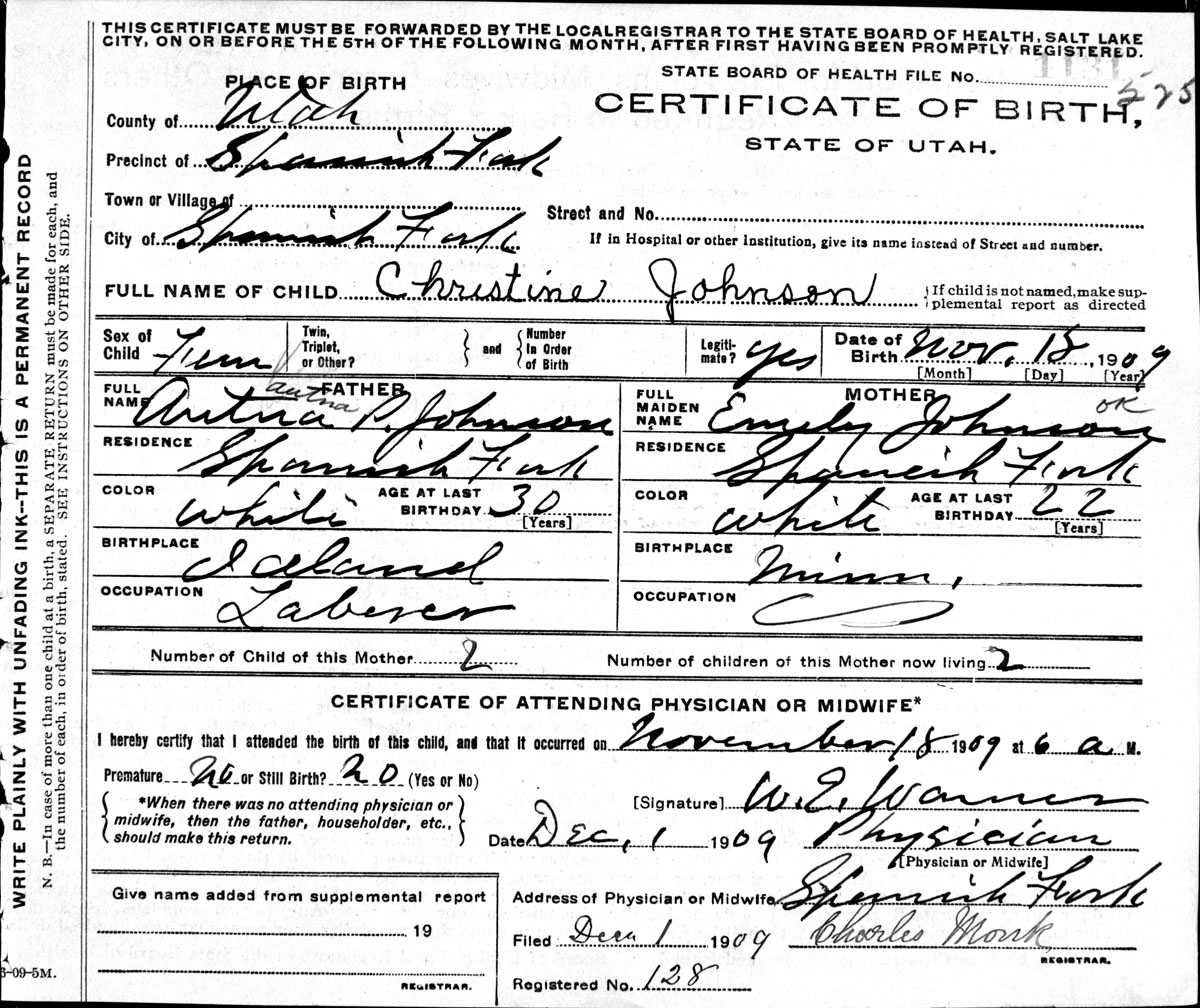 THIS CERTIFICATE MUST BE FORWARDED BY THE LOCAL REGISTRAR TO THE STATE BOARD OF HEALTH, SALT LAKE
CITY, ON OR BEFORE THE 5TH OF THE FOLLOWING MONTH, AFTER FIRST HAVING BEEN PROMPTLY REGISTERED.
PLACE OF BIRTH
STATE BOARD OF HEALTH FILE No. 525
CERTIFICATE OF BIRTH,
STATE OF UTAH.
County of Utah
Precinct of Spanish Fork
Town or Village of
Street and No.
City of Spanish Fork
If in Hospital or other Institution, give its name instead of Street and number.
FULL NAME OF CHILD Christine Johnson
If child is not named, make sup-
plemental report as directed
Sex of Child Fem
Twin, Triplet, or Other? and Number In Order of Birth
Legiti-mate? yes
Date of Birth Nov. 18, 1909
[Month] [Day] [Year]
FATHER
FULL NAME P. Johnson
RESIDENCE Spanish Fork
COLOR white
AGE AT LAST BIRTHDAY 30
[Years]
BIRTHPLACE Iceland
OCCUPATION Laborer
MOTHER
OK
FULL MAIDEN NAME Emely Johnson
RESIDENCE Spanish Fork
COLOR white
AGE AT LAST BIRTHDAY 22
[Years]
BIRTHPLACE Minn.
OCCUPATION
Number of Child of this Mother 2
Number of children of this Mother now living 2
CERTIFICATE OF ATTENDING PHYSICIAN OR MIDWIFE*
I hereby certify that I attended the birth of this child, and that it occurred on November 18 1909 at 6 a M.
Premature No or Still Birth? No (Yes or No)
*When there was no attending physician or
midwife, then the father, householder, etc.,
should make this return.
[Signature] W. E. Warner
Date Dec, 1 1909 Physician
[Physician or Midwife]
Give name added from supplemental report
19
REGISTRAR.
Address of Physician or Midwife Spanish Fork
Filed Dec 1 1909 Charles Monk
REGISTRAR.
Registered No. 128
WRITE PLAINLY WITH UNFADING INK--THIS IS A PERMANENT RECORD
N. B.—In case of more than one child at a birth, a SEPARATE RETURN must be made for each, and
the number of each, in order of birth, stated. SEE INSTRUCTIONS ON OTHER SIDE.
3-09-5M.